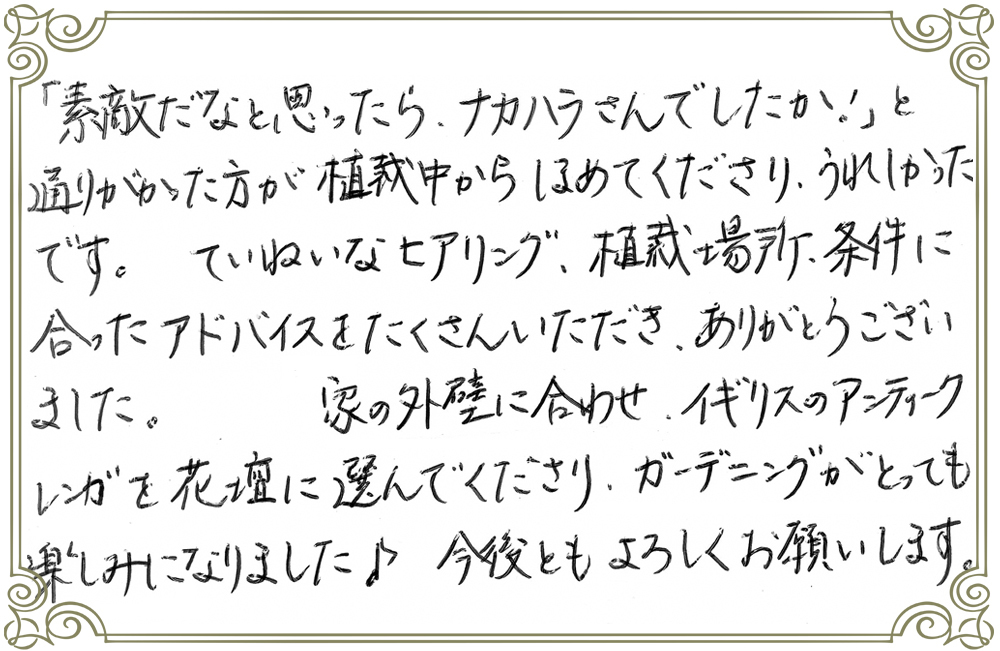 「素敵だなと思ったら、ナカハラさんでしたか!」と
通りがかった方が植栽中からほめてくださり、うれしかった
です。 ていねいなヒアリング、植栽場所、条件に
合ったアドバイスをたくさんいただき、ありがとうござい
ました。 家の外壁に合わせ、イギリスのアンティーク
レンガを花壇に選んでくださり、ガーデニングがとっても
楽しみになりました♪ 今後ともよろしくお願いします。